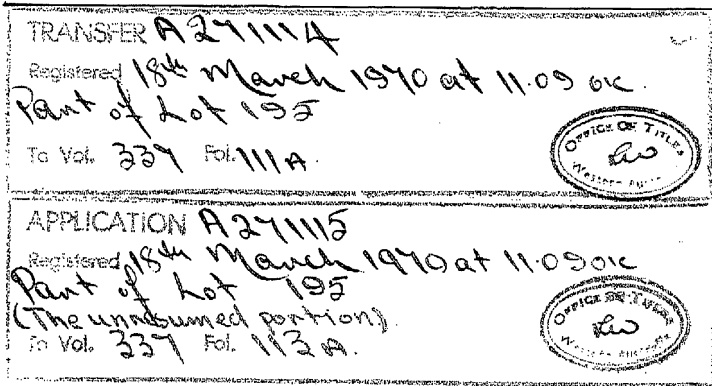 TRANSFER A271114
Registered 18th March 1970 at 11.09 oc.
Part of Lot 195
To Vol. 337 Fol. 111A.
OFFICE OF TITLES
Western Austr
APPLICATION A271115
Registered 18th March 1970 at 11.09 oc
Part of Lot 195
(The unresumed portion)
To Vol. 337 Fol. 113A.
OFFICE OF TITLES
Western Australia